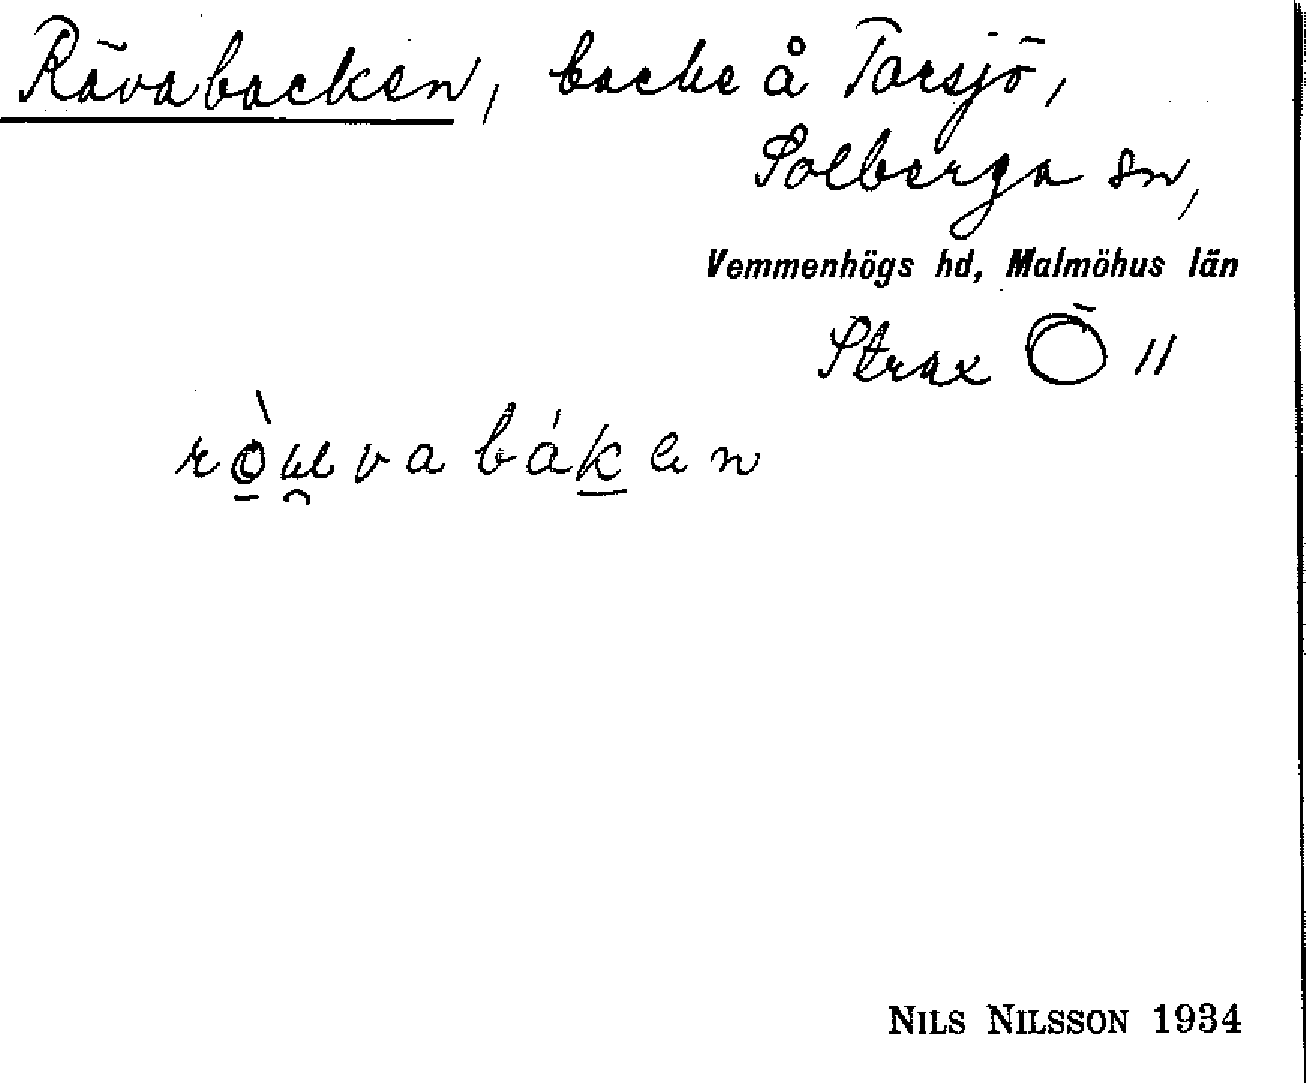 Rävabacken, backe å Torsjö,
Solberga sn,
Vemmenhögs hd, Malmöhus län
Strax Ö 11
NILS NILSSON 1934